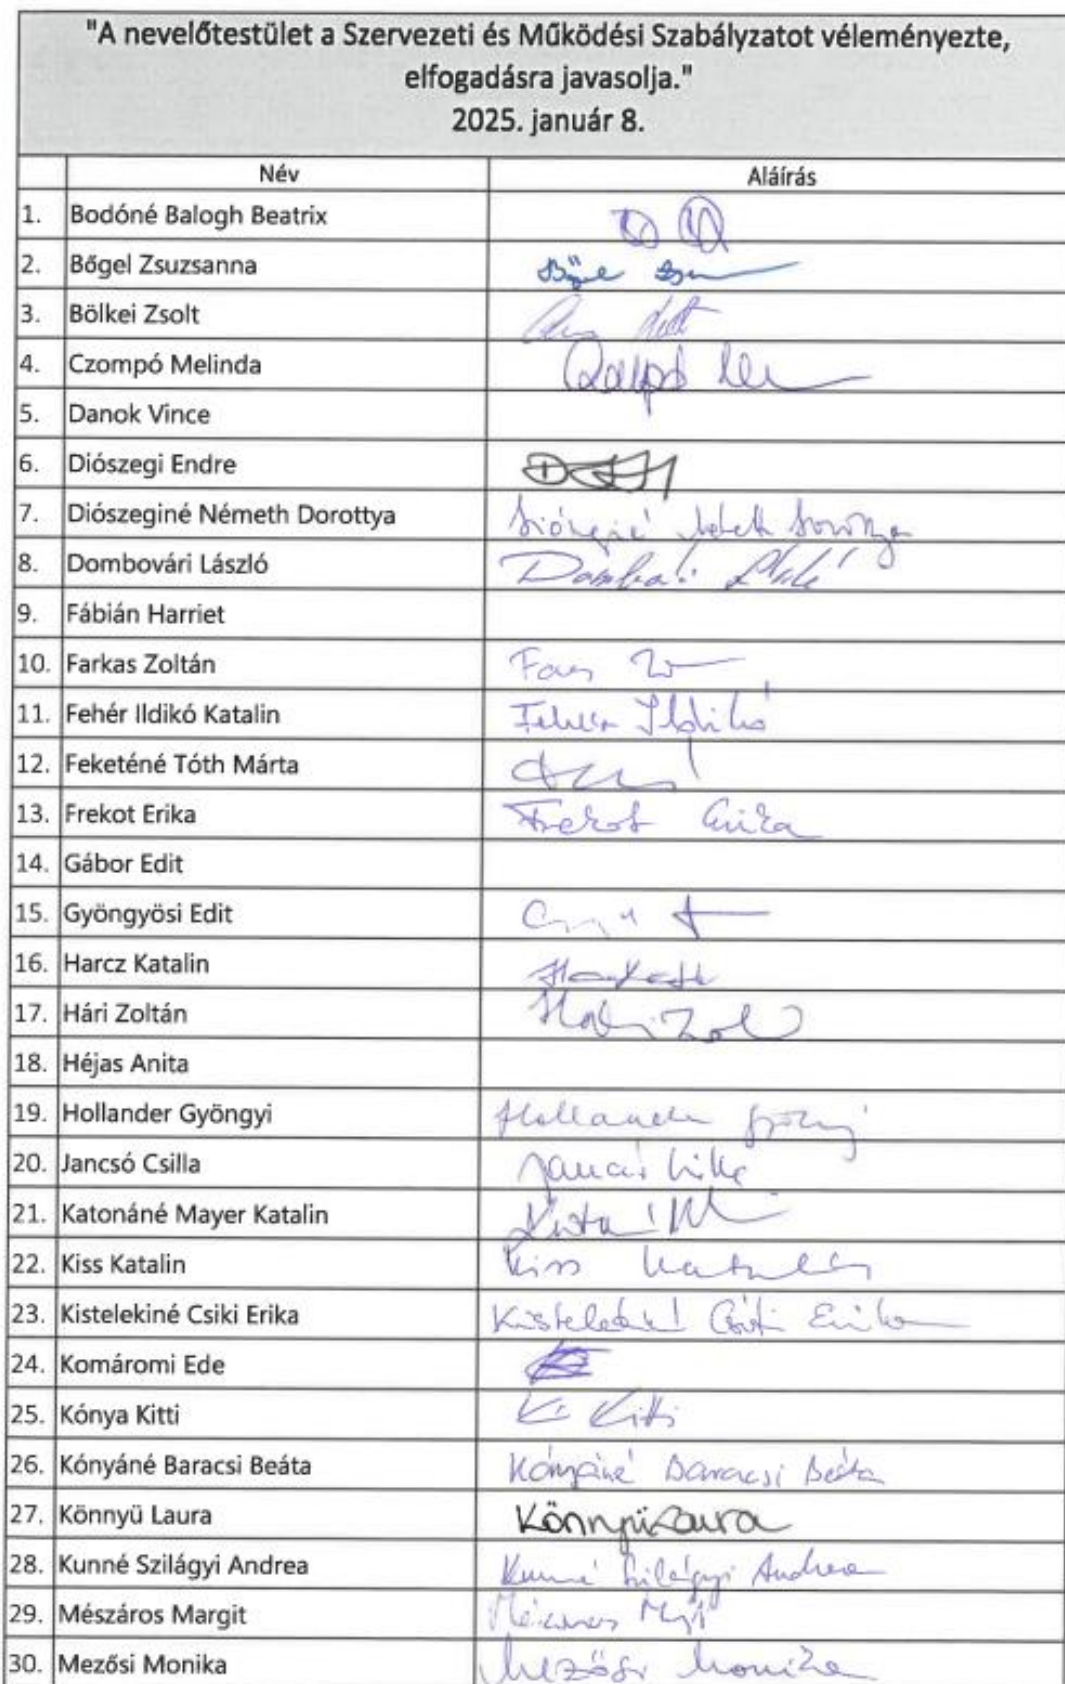 "A nevelőtestület a Szervezeti és Működési Szabályzatot véleményezte,
elfogadásra javasolja."
2025. január 8.
Név Aláírás
1. Bodóné Balogh Beatrix
2. Bőgel Zsuzsanna
3. Bölkei Zsolt
4. Czompó Melinda
5. Danok Vince
6. Diószegi Endre
7. Diószeginé Németh Dorottya
8. Dombovári László
9. Fábián Harriet
10. Farkas Zoltán
11. Fehér Ildikó Katalin Fehér Ildikó
12. Feketéné Tóth Márta
13. Frekot Erika Frekot Erika
14. Gábor Edit
15. Gyöngyösi Edit
16. Harcz Katalin
17. Hári Zoltán
18. Héjas Anita
19. Hollander Gyöngyi Hollander
20. Jancsó Csilla
21. Katonáné Mayer Katalin
22. Kiss Katalin Kiss Katalin
23. Kistelekiné Csiki Erika Kistelekiné Csiki Erika
24. Komáromi Ede
25. Kónya Kitti K. Kitti
26. Kónyáné Baracsi Beáta Kónyáné Baracsi Beáta
27. Könnyü Laura Könnyü Laura
28. Kunné Szilágyi Andrea Kunné Szilágyi Andrea
29. Mészáros Margit
30. Mezősi Monika Mezősi Monika